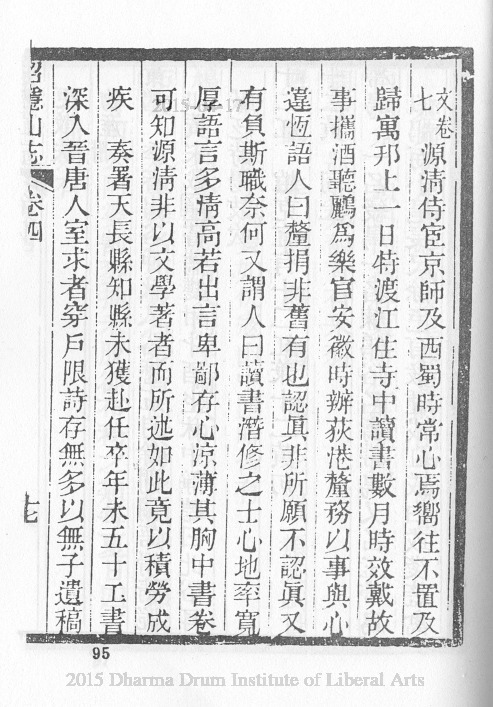 文卷七 源清侍宦京師及西蜀時常心焉嚮往不置及
歸寓邗上一日特渡江住寺中讀書數月時效戴故
事攜酒聽鸝爲樂官安徽時辦荻港釐務以事與心
違恆語人曰釐捐非舊有也認眞非所願不認眞又
有負斯職奈何又謂人曰讀書潛修之士心地率寬
厚語言多情高若出言卑鄙存心涼薄其胸中書卷
可知源清非以文學著者而所述如此竟以積勞成
疾 奏署天長縣知縣未獲赴任卒年未五十工書
深入晉唐人室求者穿戶限詩存無多以無子遺稿
招隱山志 卷四
七
95
2015 Dharma Drum Institute of Liberal Arts